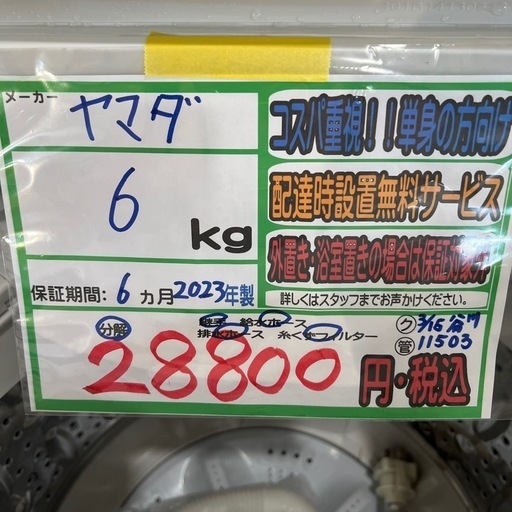 メーカー
ヤマダ
6
kg
保証期間: 6 カ月 2023年製
コスパ重視!!単身の方向け
配達時設置無料サービス
外置き・浴室置きの場合は保証対象外
詳しくはスタッフまでお声かけください。
分解 給水ホース
排水ホース 糸くずフィルター
ク 3/15
管 11503
28800
円・税込